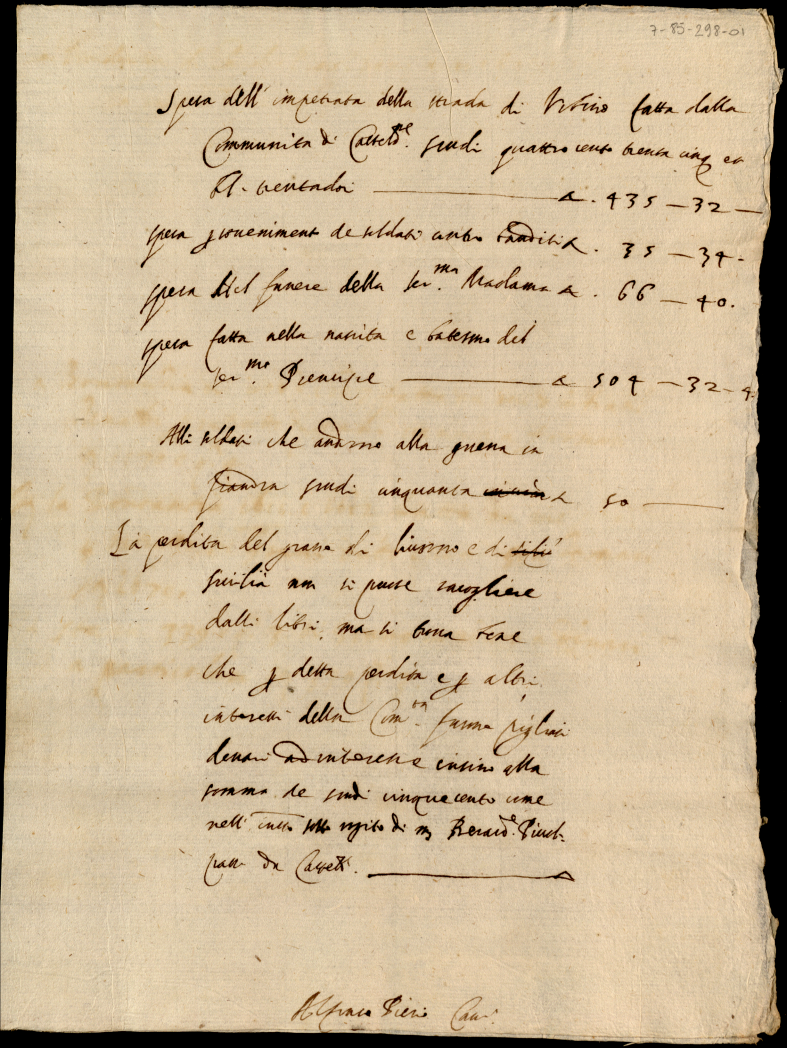 7-85-298-01
Spesa dell' impetrata della strada di Urbino fatta dalla
Communita di Casteld.te scudi quattrocento trenta cinq et
32 — 435 — 32 —
spesa p soveniment de soldati contro banditi 35 — 34.
spesa del funere della ser.ma Madama 66 — 40.
spesa fatta nella nascita e batesmo del
ser.mo Prencipe — 504 — 32 - 4
Alli soldati che andorno alla guerra in
fiandra scudi cinquanta 50 —
La perdita del grano di livorno e di
sicilia non si puote racogliere
dalli libri, ma si trova bene
che p detta perdita e p altri
interessi della Com.ta furno pigliati
denari ad interesse insino alla
somma de scudi cinquecento come
nell' sotto rogito di m Berard.o
da Castell.
Pieri Canc.